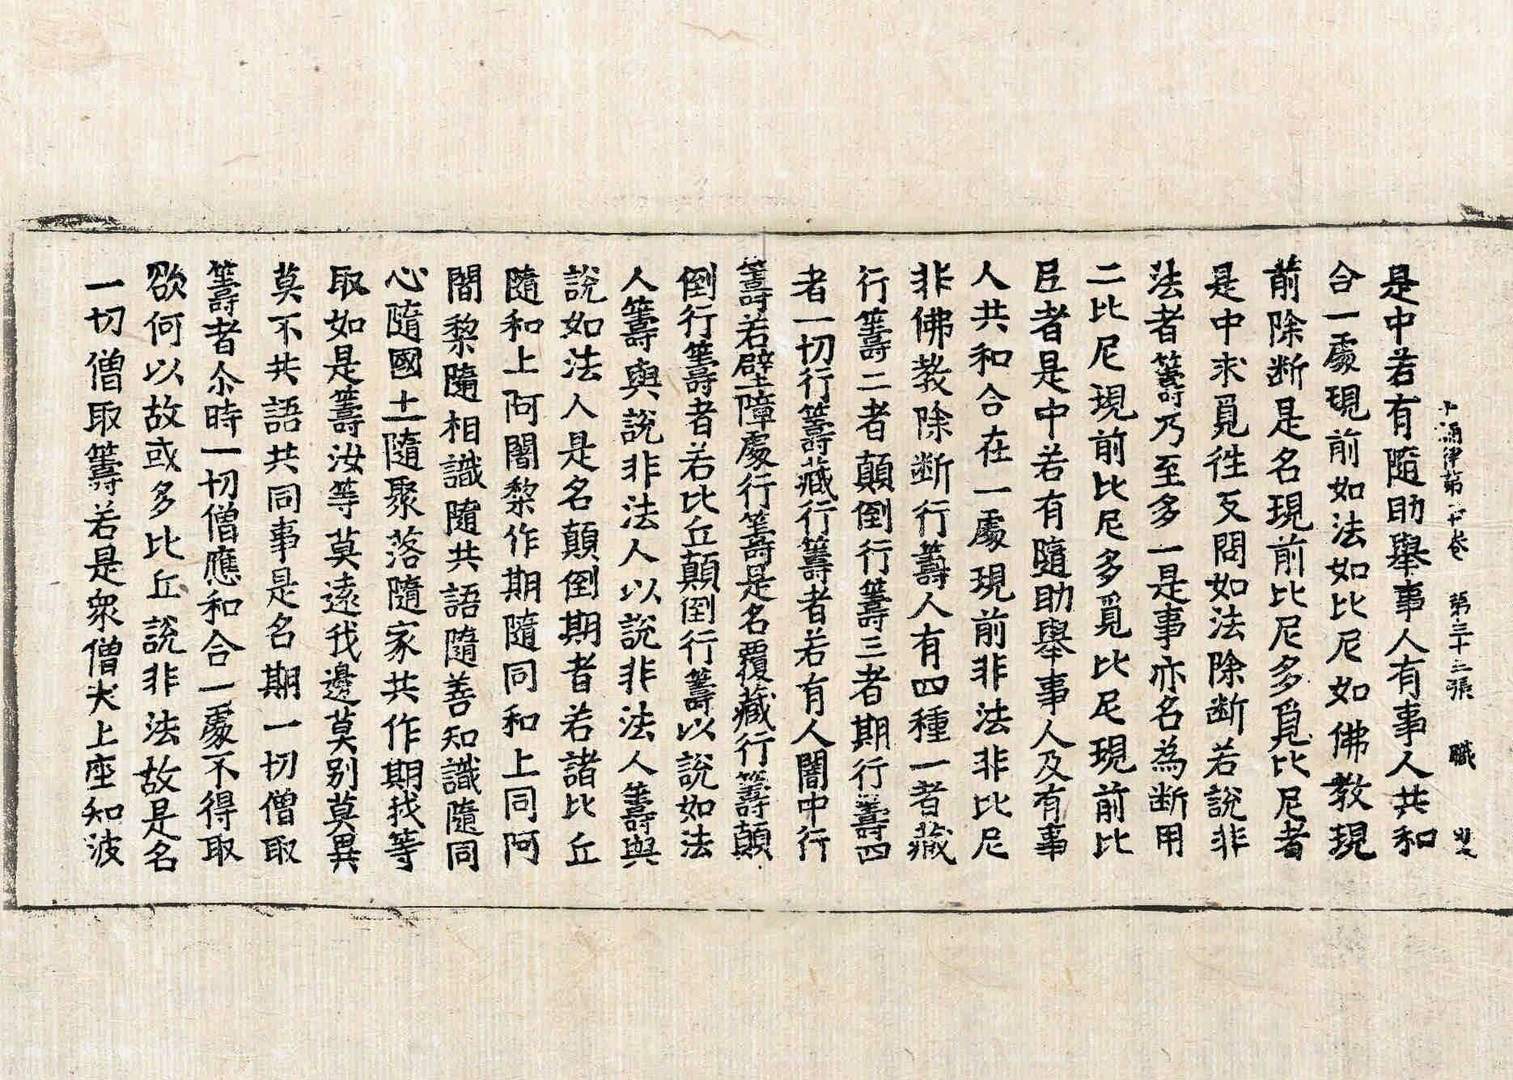 十誦律第 卷 第三十三張 職
是中若有隨助舉事人有事人共和
合一處現前如法如比尼如佛教現
前除断是名現前比尼多覓比尼者
是中求覓徃反問如法除断若說非
法者籌乃至多一是事亦名為断用
二比尼現前比尼多覓比尼現前比
尼者是中若有隨助舉事人及有事
人共和合在一處現前非法非比尼
非佛教除断行籌人有四種一者藏
行籌二者顛倒行籌三者期行籌四
者一切行籌藏行籌者若有人闇中行
籌若壁障處行籌是名覆藏行籌顛
倒行籌者若比丘顛倒行籌以說如法
人籌與說非法人以說非法人籌與
說如法人是名顛倒期者若諸比丘
隨和上阿闍黎作期隨同和上同阿
闍黎隨相識隨共語隨善知識隨同
心隨國土隨聚落隨家共作期我等
取如是籌汝等莫遠我邊莫別莫異
莫不共語共同事是名期一切僧取
籌者尒時一切僧應和合一處不得取
欲何以故或多比丘說非法故是名
一切僧取籌若是衆僧大上座知波